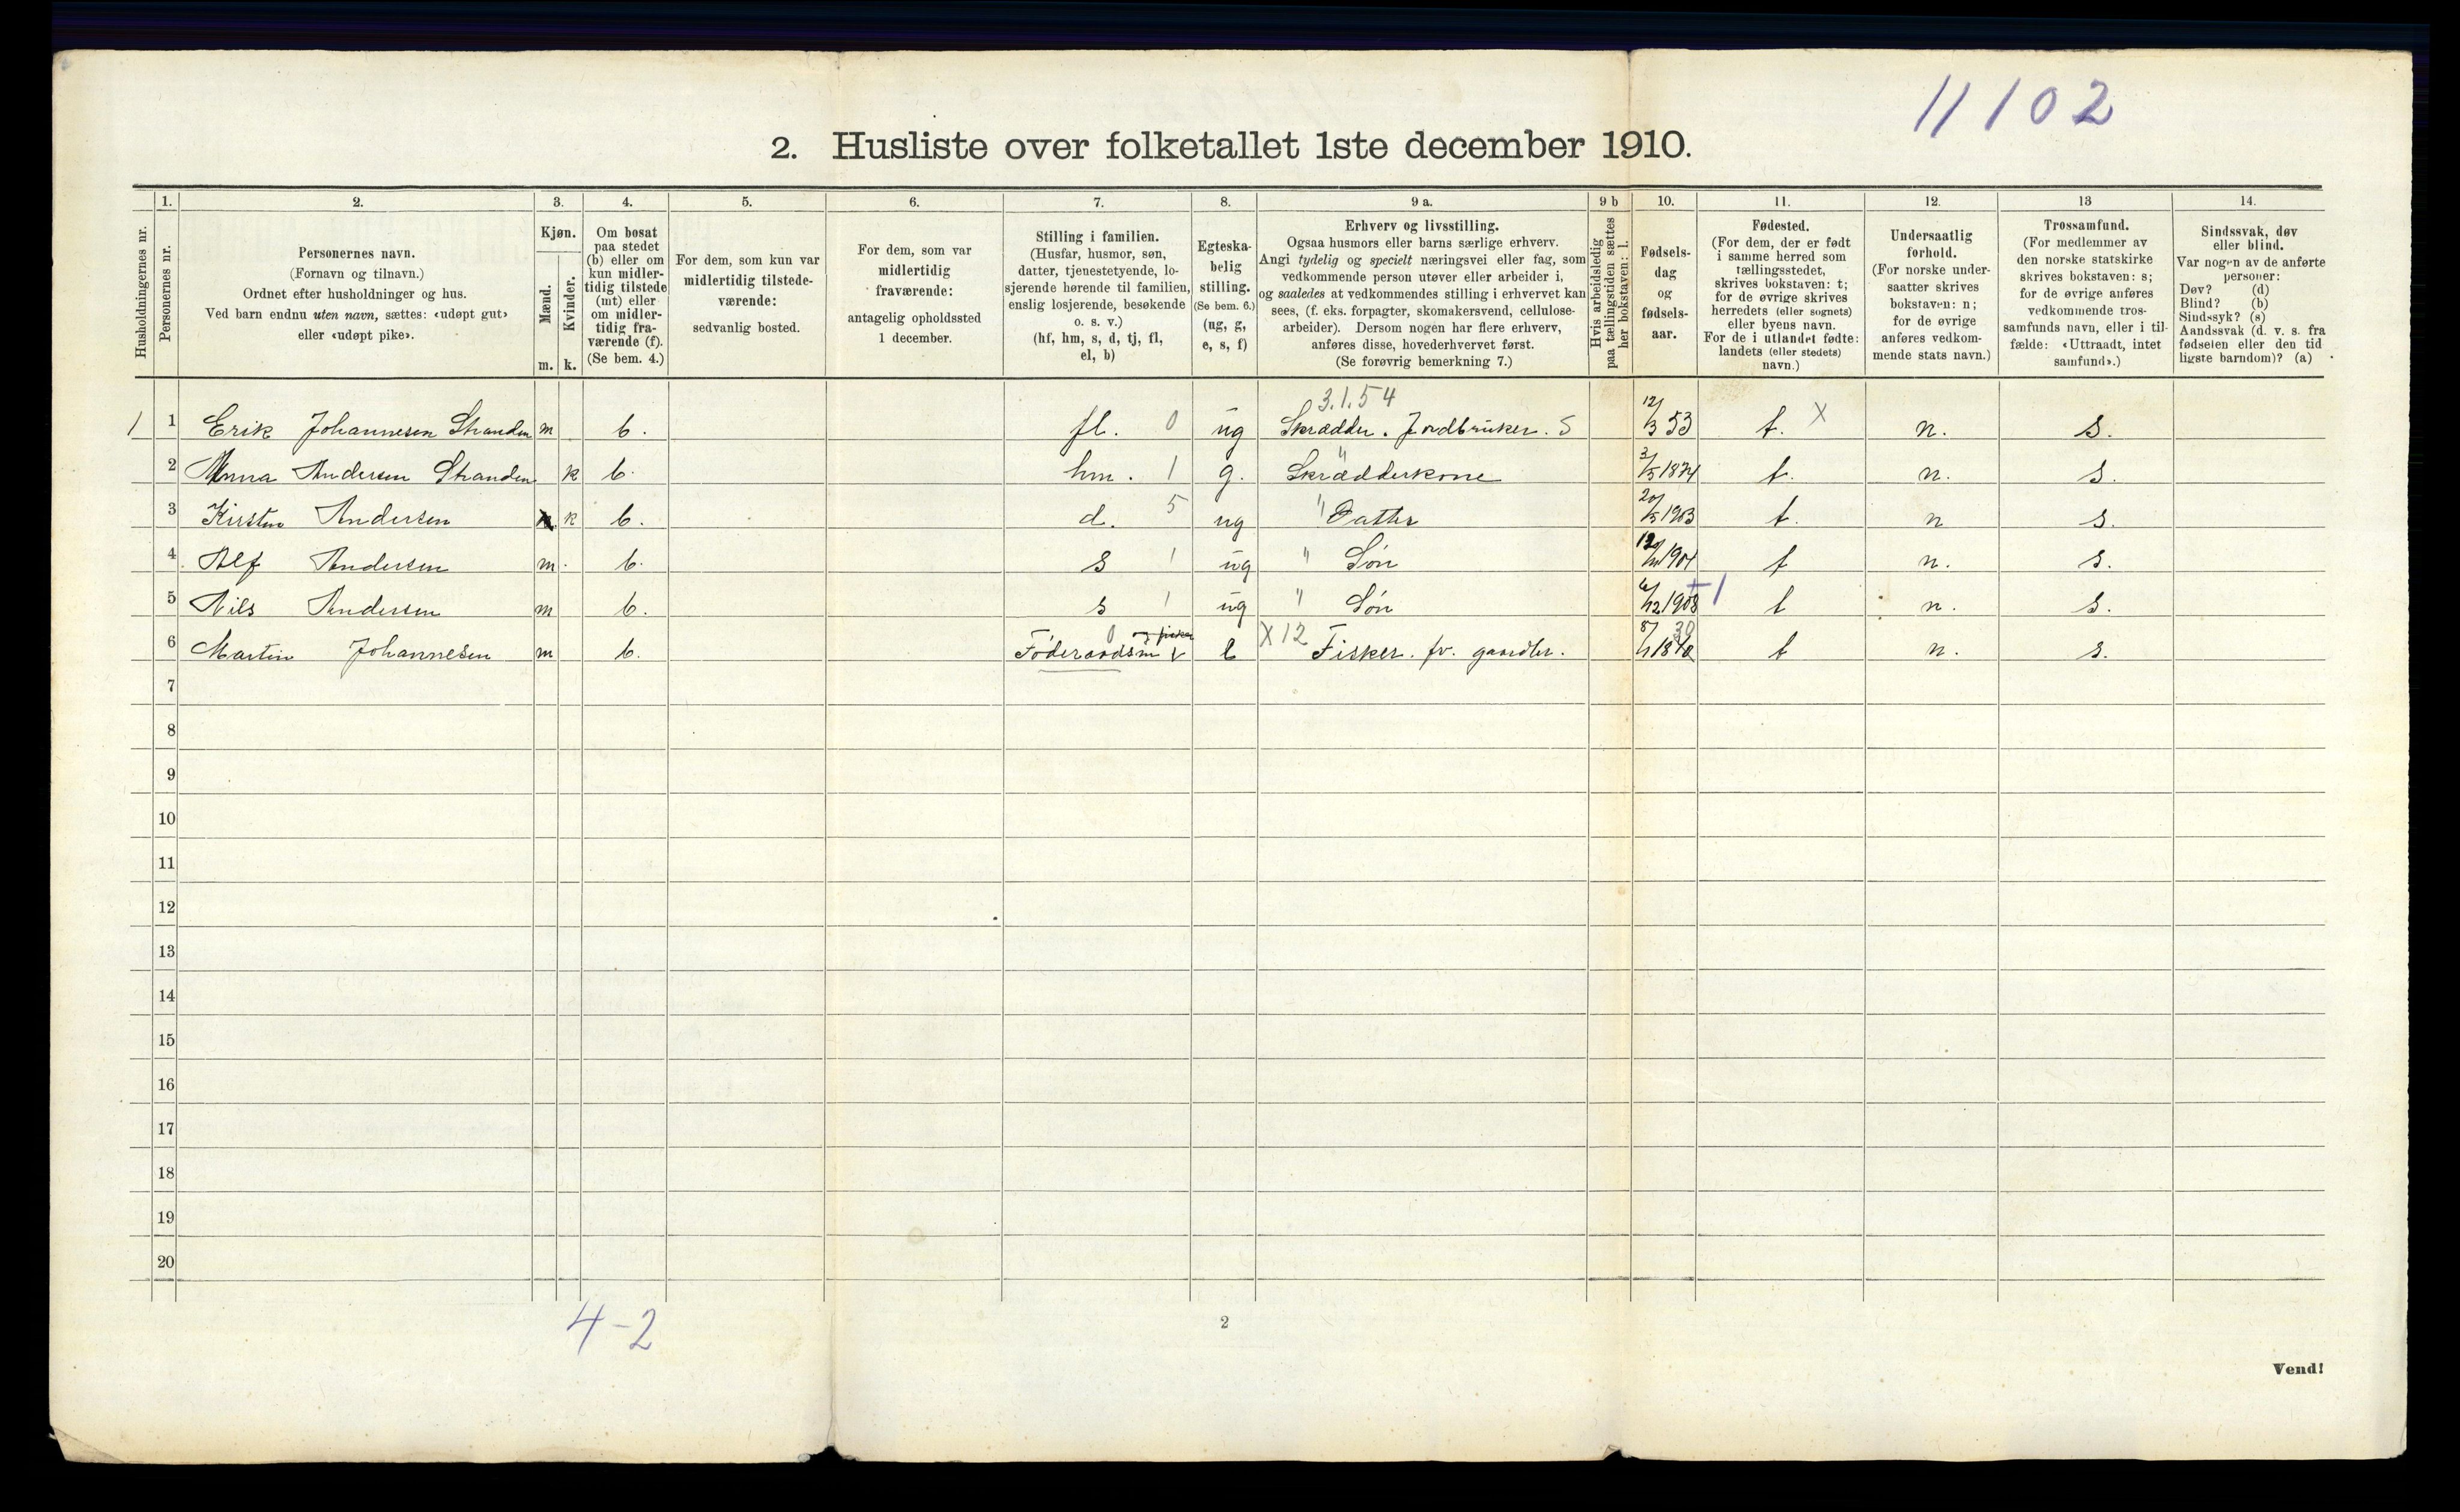 11102
2. Husliste over folketallet 1ste december 1910.
1. 2. 3. 4. 5. 6. 7. 8. 9 a. 9 b 10. 11. 12. 13 14.
Husholdningernes nr.
Personernes nr.
Personernes navn.
(Fornavn og tilnavn.)
Ordnet efter husholdninger og hus.
Ved barn endnu uten navn, sættes: «udøpt gut»
eller «udøpt pike».
Kjøn.
Mænd.
Kvinder.
m. k.
Om bosat
paa stedet
(b) eller om
kun midler-
tidig tilstede
(mt) eller
om midler-
tidig fra-
værende (f).
(Se bem. 4.)
For dem, som kun var
midlertidig tilstede-
værende:
sedvanlig bosted.
For dem, som var
midlertidig
fraværende:
antagelig opholdssted
1 december.
Stilling i familien.
(Husfar, husmor, søn,
datter, tjenestetyende, lo-
sjerende hørende til familien,
enslig losjerende, besøkende
o. s. v.)
(hf, hm, s, d, tj, fl,
el, b)
Egteska-
belig
stilling.
(Se bem. 6.)
(ug, g,
e, s, f)
Erhverv og livsstilling.
Ogsaa husmors eller barns særlige erhverv.
Angi tydelig og specielt næringsvei eller fag, som
vedkommende person utøver eller arbeider i,
og saaledes at vedkommendes stilling i erhvervet kan
sees, (f. eks. forpagter, skomakersvend, cellulose-
arbeider). Dersom nogen har flere erhverv,
anføres disse, hovederhvervet først.
(Se forøvrig bemerkning 7.)
Hvis arbeidsledig
paa tællingstiden sættes
her bokstaven: l.
Fødsels-
dag
og
fødsels-
aar.
Fødested.
(For dem, der er født
i samme herred som
tællingsstedet,
skrives bokstaven: t;
for de øvrige skrives
herredets (eller sognets)
eller byens navn.
For de i utlandet fødte:
landets (eller stedets)
navn.)
Undersaatlig
forhold.
(For norske under-
saatter skrives
bokstaven: n;
for de øvrige
anføres vedkom-
mende stats navn.)
Trossamfund.
(For medlemmer av
den norske statskirke
skrives bokstaven: s;
for de øvrige anføres
vedkommende tros-
samfunds navn, eller i til-
fælde: «Uttraadt, intet
samfund».)
Sindssvak, døv
eller blind.
Var nogen av de anførte
personer:
Døv? (d)
Blind? (b)
Sindssyk? (s)
Aandssvak (d. v. s. fra
fødselen eller den tid
ligste barndom)? (a)
3.1.54
1 1 Erik Johannesen Stranden m b. fl. 0 ug Skrædder. Jordbruker. S 12/3 53 t. X n. s.
2 Anna Andersen Stranden k b. hm. 1 g. Skrædderkone 3/5 1874 t. n. s.
3 Kirsten Andersen k b. d. 5 ug " Datter 20/5 1903 t. n s.
4 Alf Andersen m. b. s 1 ug " Søn 1904 t n. s.
5 Nils Andersen m b. s 1 ug " Søn 6/12 1908 t n. s.
6 Martin Johannesen m b. Föderaadsm 0 og fisker e X12 Fisker. fv. gaardbr. 30 t n. s.
7
8
9
10
11
12
13
14
15
16
17
18
19
20
4-2
2
Vend!